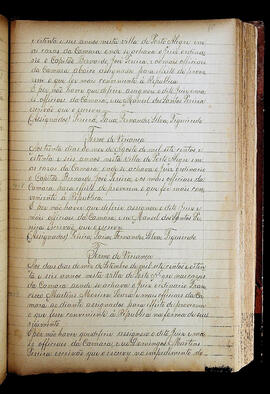 e oitenta e seis annos nesta villa de Porto Alegre em
as cazas da Camara onde se achava o Juiz ordina
rio Capitão Bernardo José Pereira e os mais officiaes
da Camara abaixo assignados para efeito de prove
rem o que for mais conveniente à Republica
E por não haver que deferir assignou o dito Juiz e ma
is officiaes da Camara, eu Manoel dos Santos Penna
escrivão que o escrevi
(Assignados) Pereira, Faria, Fernandes, Silva, Figueiredo
Termo de Vereança
Aos trinta dias do mez de Agosto de mil sete centos e
oitenta e seis annos nesta villa de Porto Alegre em
as cazas da Camara onde se achava o Juiz ordinario
o Capitão Bernardo José Pereira e os mais officiaes da
Camara para efeito de proverem o que for mais conve
niente à Republica
E por não haver que deferir assignou o dito Juiz e
mais officiaes da Camara, eu Manoel dos Santos Pe
nna escrivão que o escrevi
(Assignados) Pereira, Faria, Fernandes, Silva, Figueiredo
Termo de Vereança
Aos dous dias do mez de Setembro de mil sete centos e oiten
ta e seis annos nesta villa de Porto Alegre nas cazas
da Camara aonde se achava o Juiz ordinario Fran
cisco Martins e mais officiaes da Ca
mara ao diante assignados para efeito de proverem
o que fosse conveniente à Republica na forma de seus
E por não haver que deferir assignou o dito Juiz e ma
is officiaes da Camara, e eu Domingos Martins
Pereira escrivão que o escrevi no impedimento do